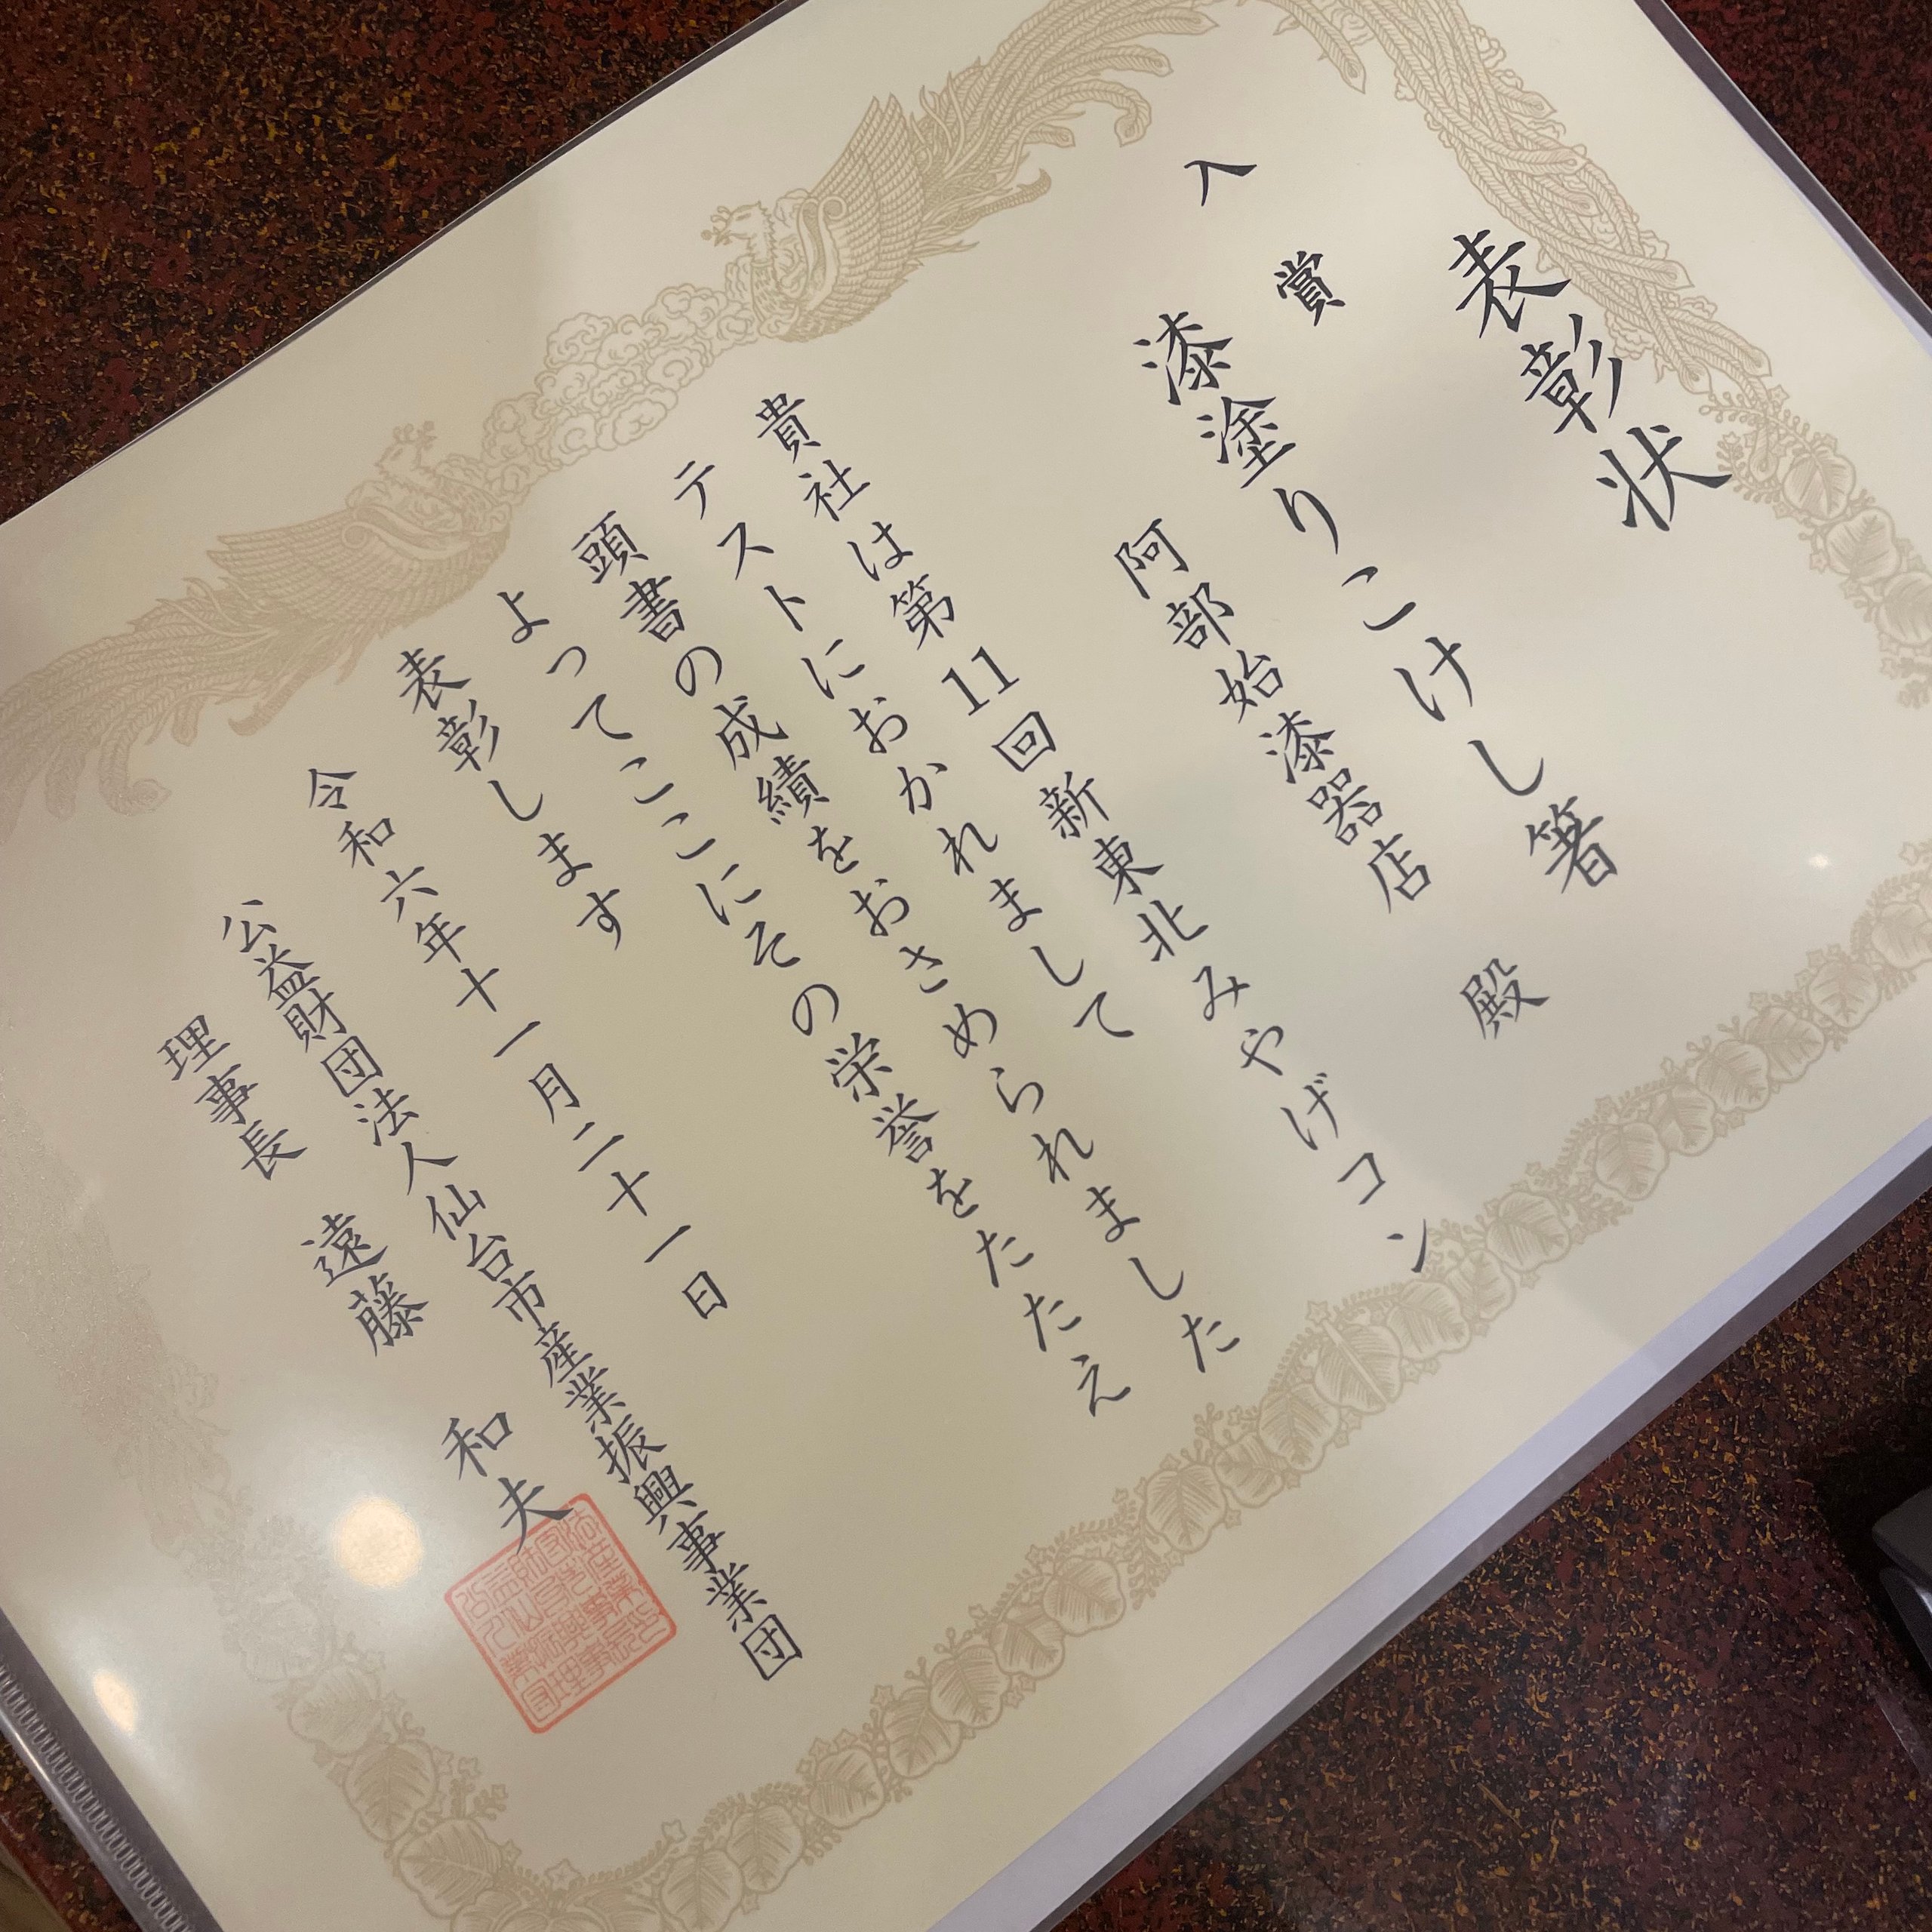 表彰状
入賞
漆塗りこけし箸
阿部始漆器店 殿
貴社は第11回新東北みやげコン
テストにおかれまして
頭書の成績をおさめられました
よってここにその栄誉をたたえ
表彰します
令和六年十一月二十一日
公益財団法人仙台市産業振興事業団
理事長 遠藤 和夫